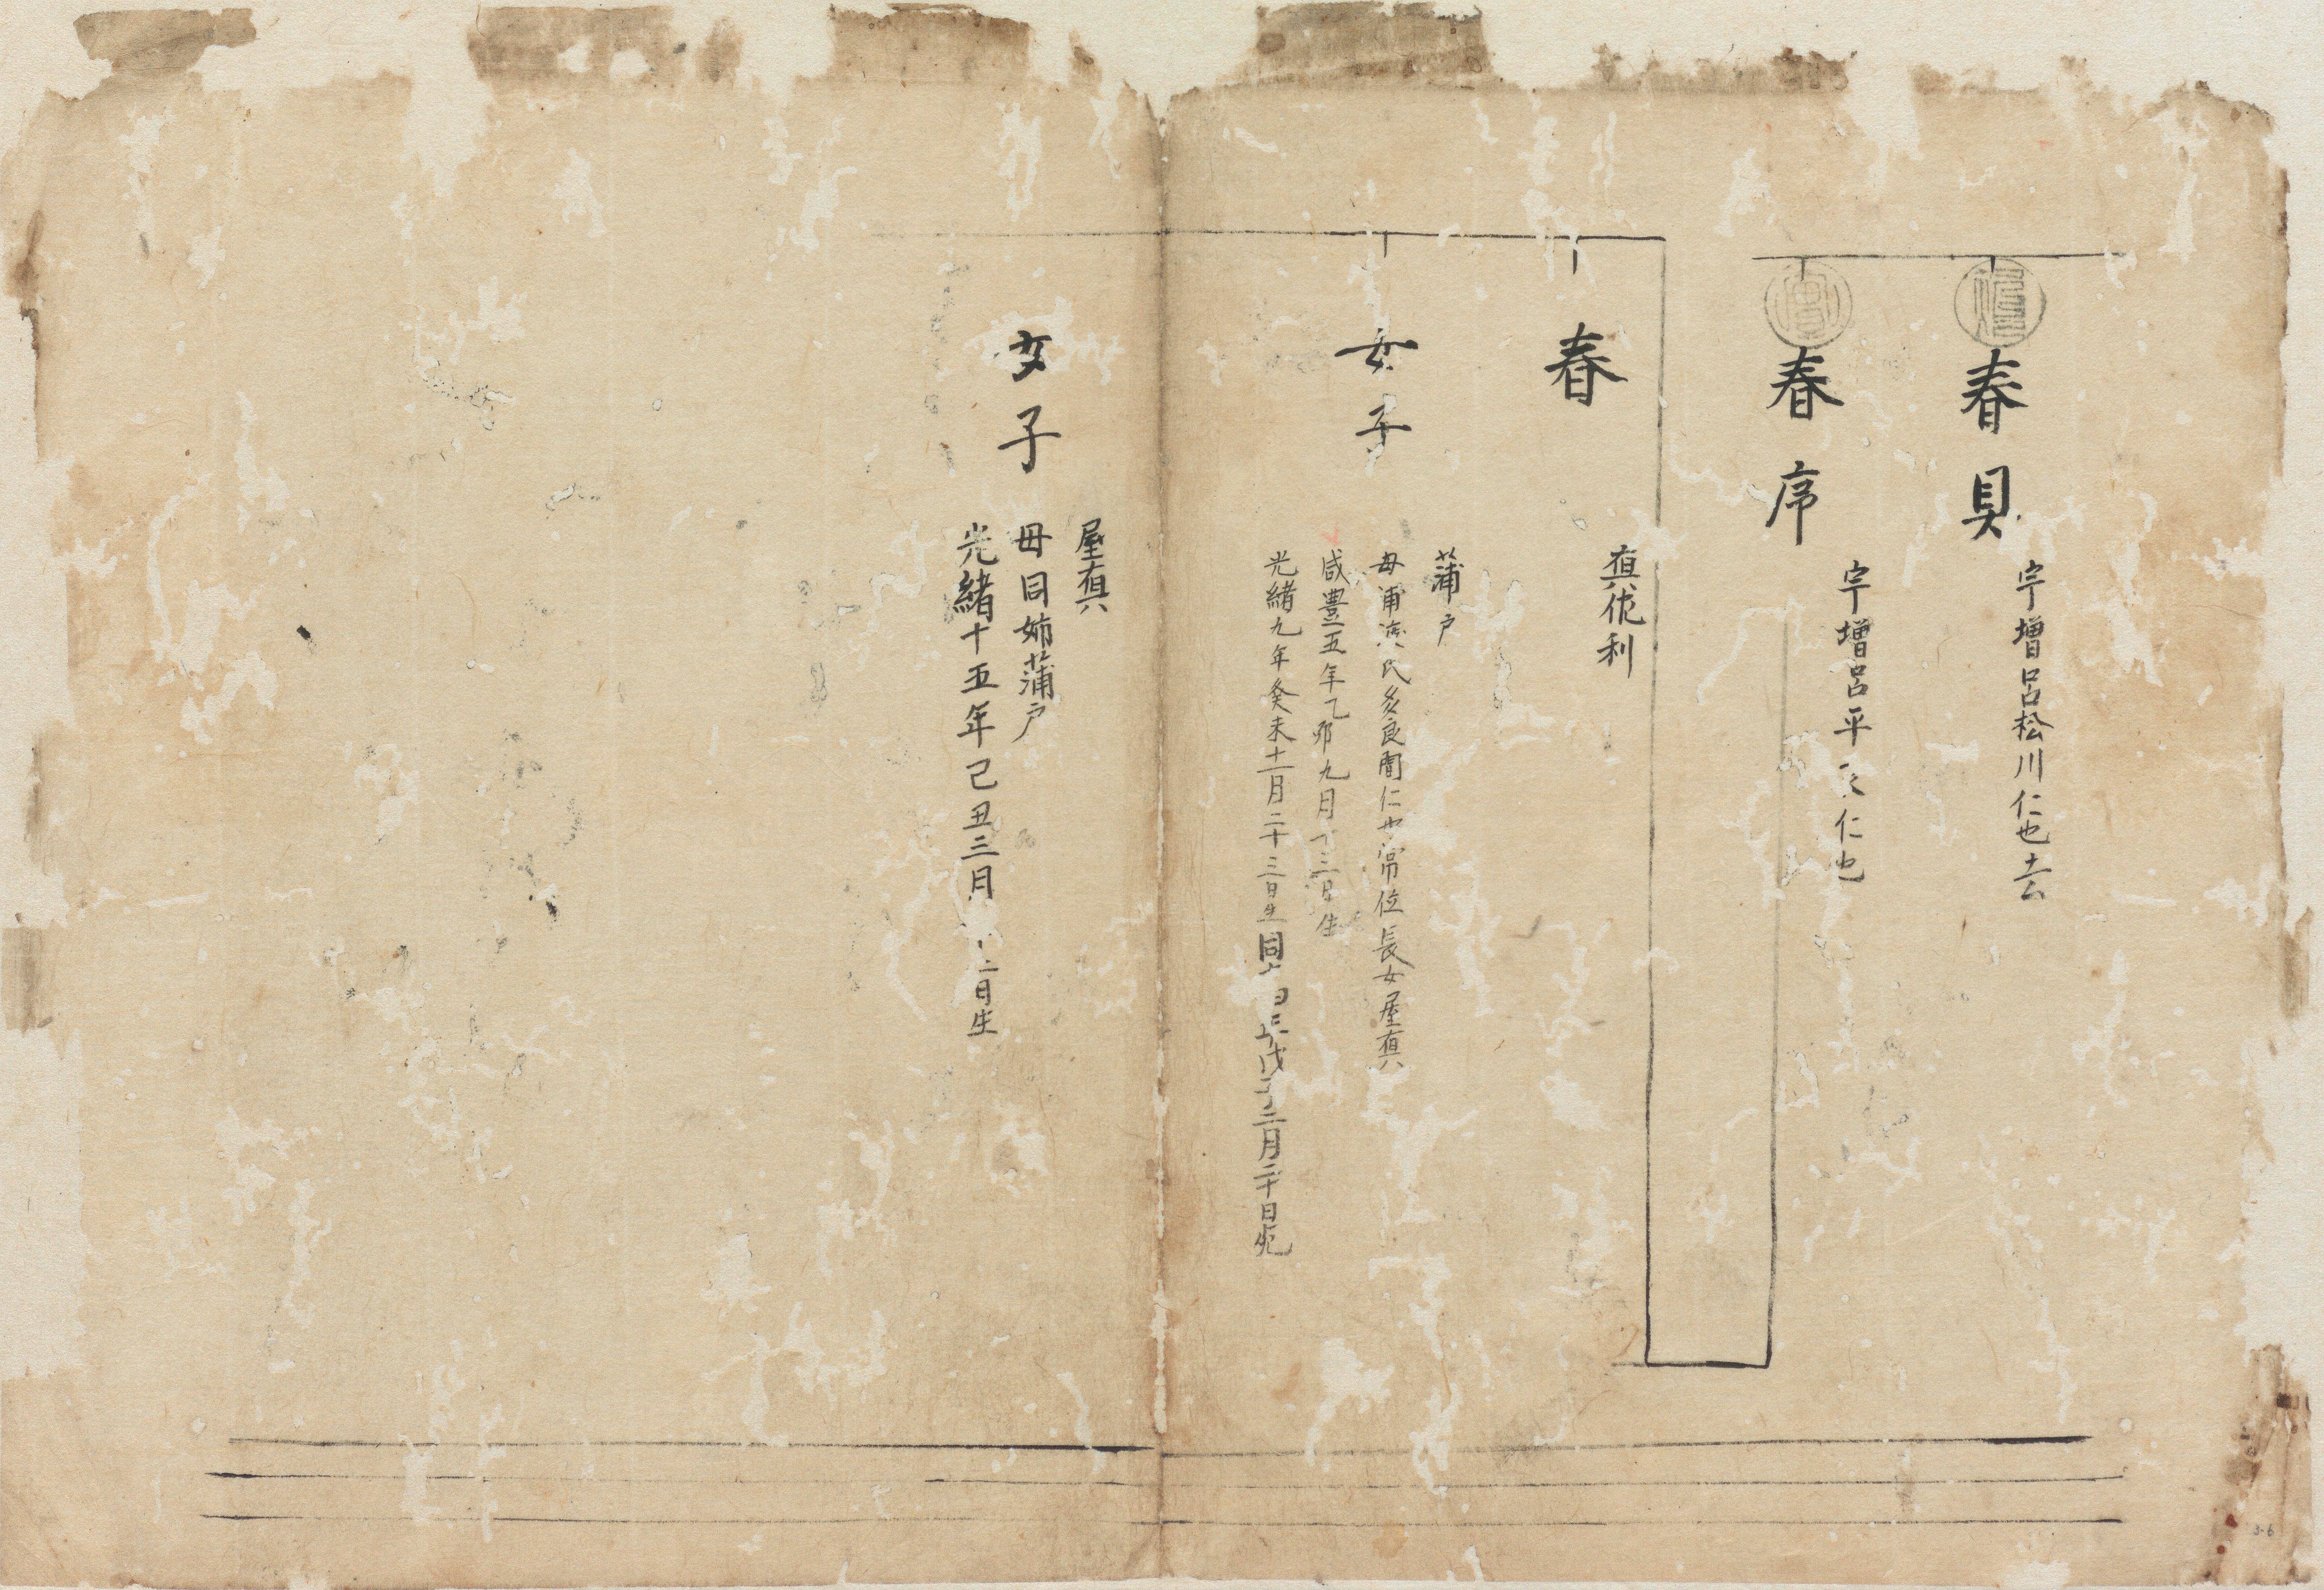 春貝
宇増呂松川仁也去
春序
宇増呂平 仁也
春
真佐利
女子
蒲戸
母浦 氏多良間仁也常位長女屋真
咸豊五年乙卯九月十三日生
光緒九年癸未十一月二十三日生同 戊子二月二十日死
女子
屋真
母同姉蒲戸
光緒十五年己丑三月 二日生
3-6